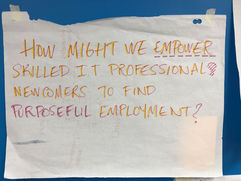 HOW MIGHT WE EMPOWER
SKILLED IT PROFESSIONAL
NEWCOMERS TO FIND
PURPOSEFUL EMPLOYMENT?